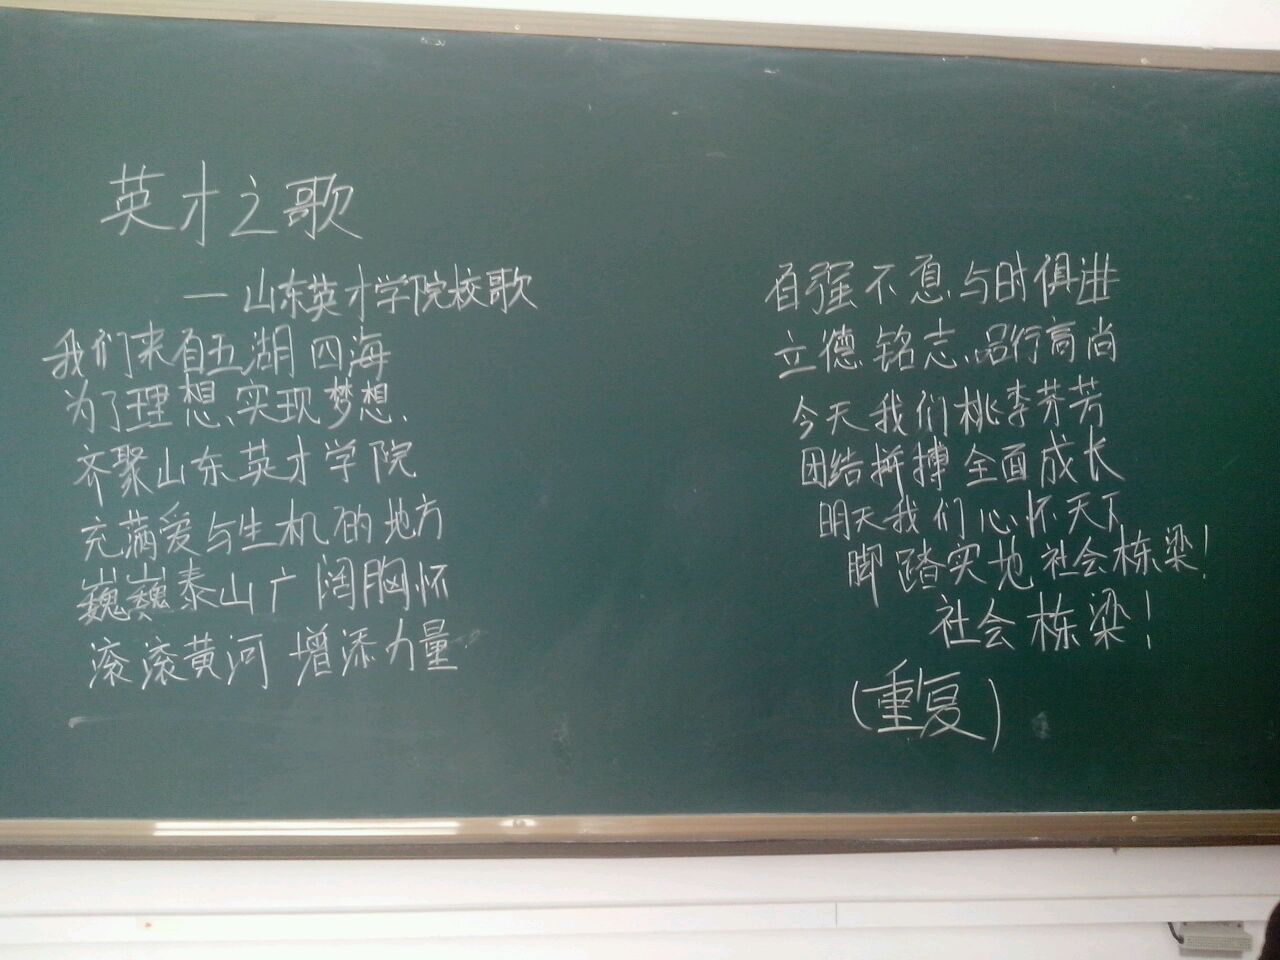 英才之歌
—山东英才学院校歌
我们来自五湖四海
为了理想、实现梦想、
齐聚山东英才学院
充满爱与生机的地方
巍巍泰山广阔胸怀
滚滚黄河 增添力量
自强不息、与时俱进
立德铭志、品行高尚
今天我们桃李芬芳
团结拼搏 全面成长
明天我们心怀天下
脚踏实地 社会栋梁!
社会栋梁!
(重复)